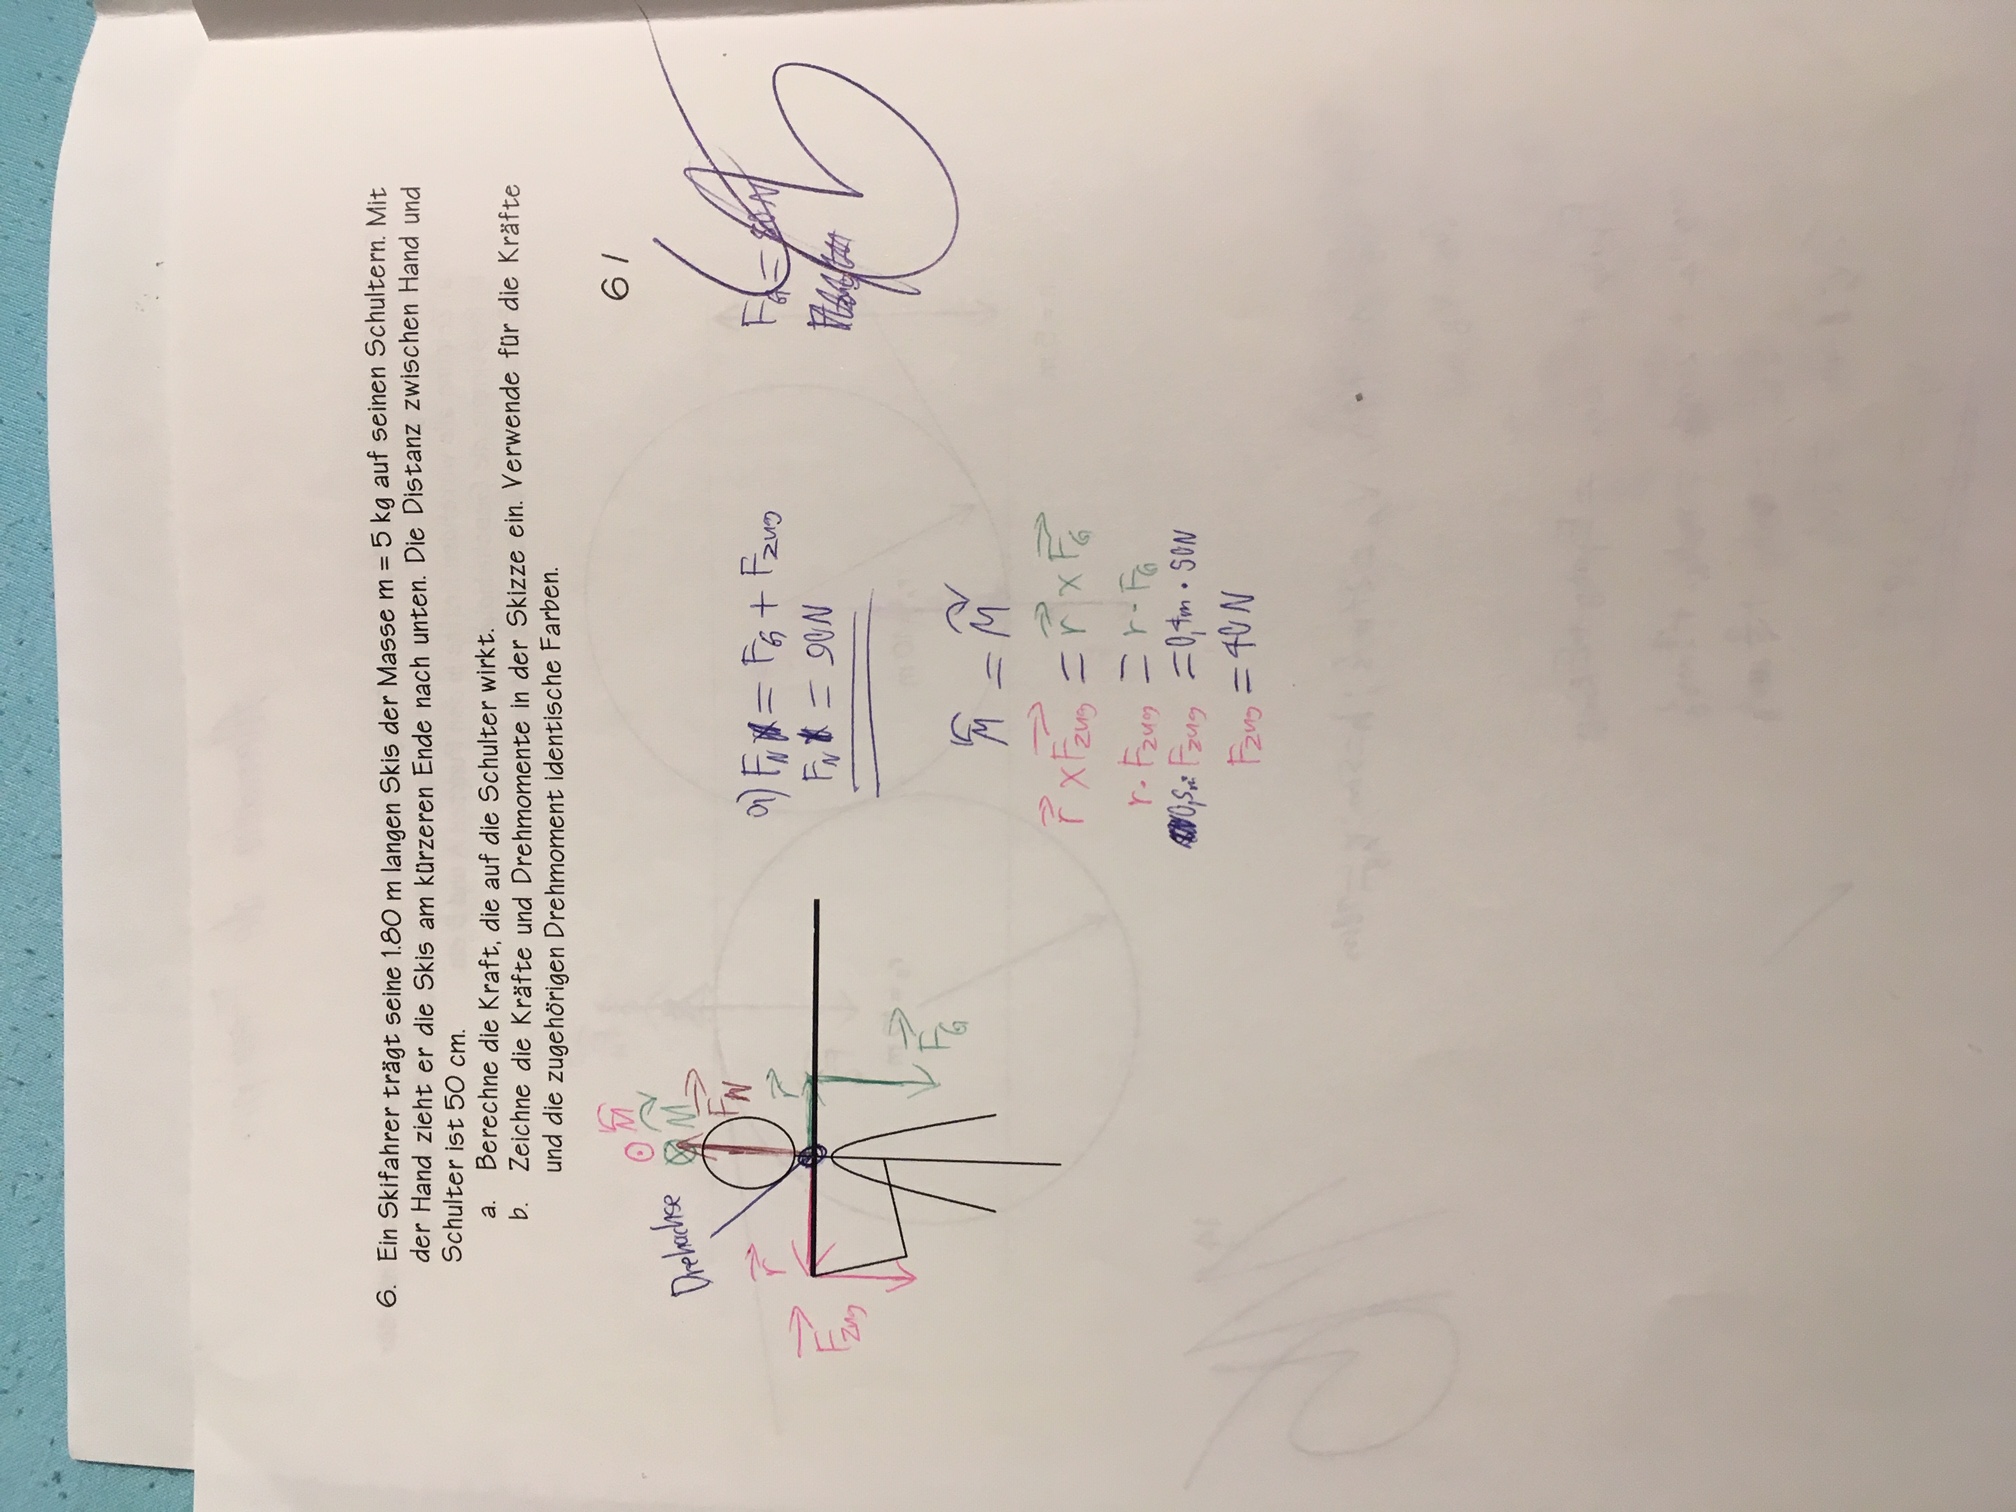 6. Ein Skifahrer trägt seine 1.80 m langen Skis der Masse m = 5 kg auf seinen Schultern. Mit
der Hand zieht er die Skis am kürzeren Ende nach unten. Die Distanz zwischen Hand und
Schulter ist 50 cm.
a. Berechne die Kraft, die auf die Schulter wirkt.
b. Zeichne die Kräfte und Drehmomente in der Skizze ein. Verwende für die Kräfte
und die zugehörigen Drehmoment identische Farben.
6 /
6
M
M
Drehachse
F_N
r
r
F_zug
F_G
a) F_N = F_G + F_zug
F_N = 90N
F_G = 50N
M = M
r × F_zug = r × F_G
r · F_zug = r · F_G
0,5m · F_zug = 0,4m · 50N
F_zug = 40N